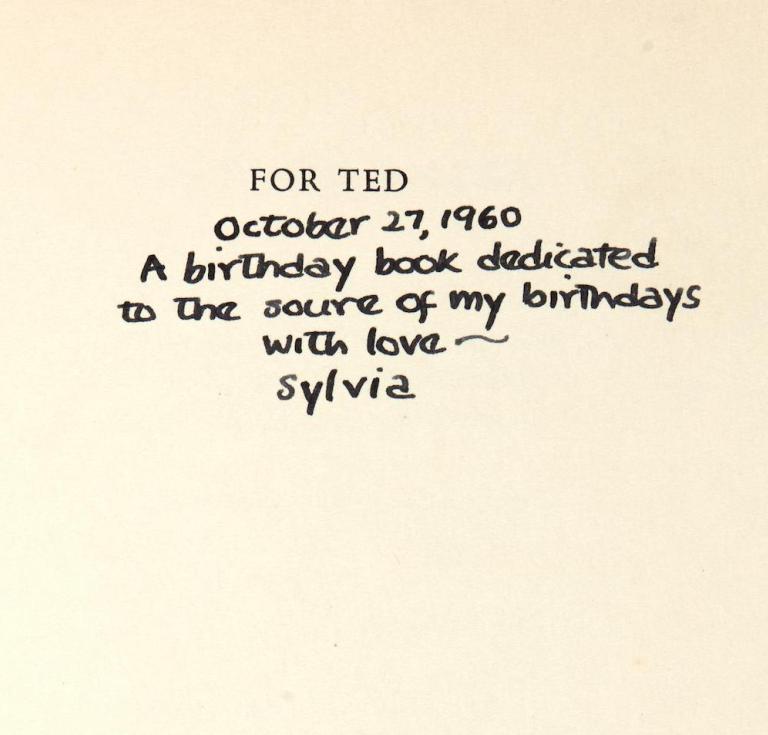 FOR TED
October 27, 1960
A birthday book dedicated
to the soure of my birthdays
with love ~
Sylvia